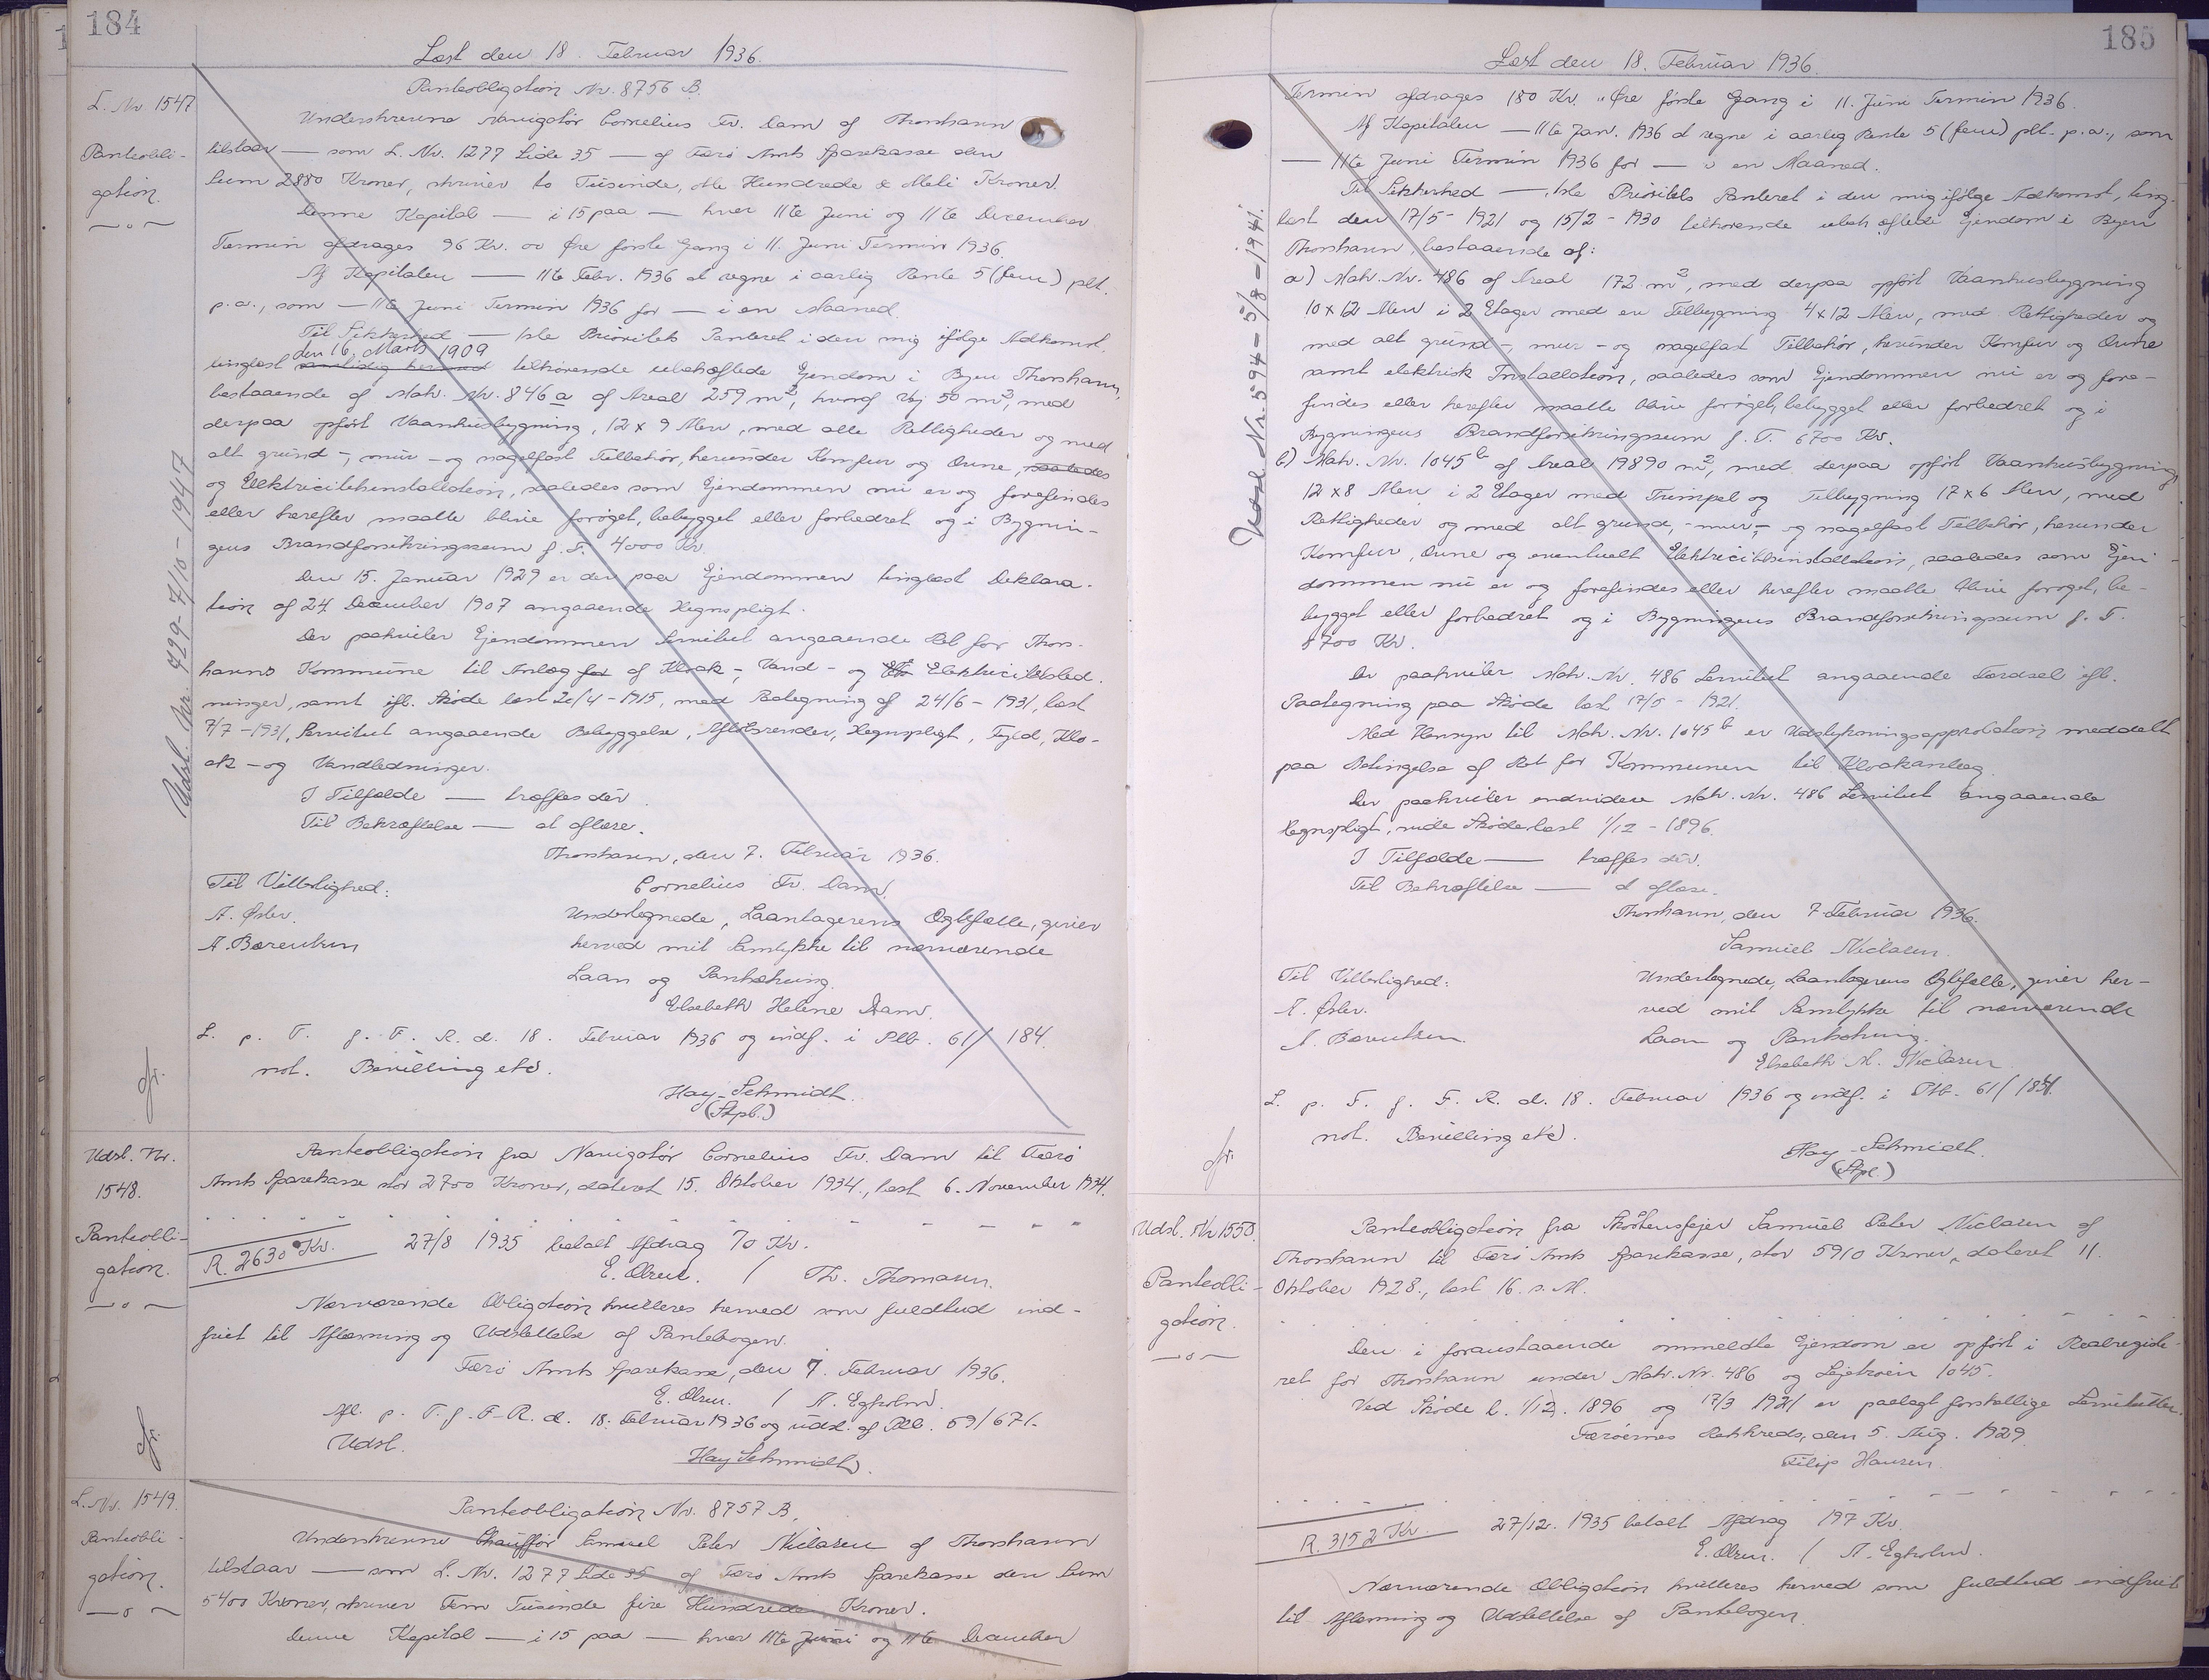 184
Læst den 18. Februar 1936.
L. Nr. 1547
Panteobli-
gation.
Panteobligation Nr. 8756 B.
Underskrevne Navigatør Cornelius Fr. Dam af Thorshavn
tilstaar — som L. Nr. 1277 Side 35 — af Færø Amts Sparekasse den
Sum 2880 Kroner, skriver to Tusinde, otte Hundrede & otteti Kroner.
Denne Kapital — i 15 paa — hver 11te Juni og 11te December
Termin afdrages 96 Kr. 00 Øre første Gang i 11. Juni Termin 1936.
Af Kapitalen — 11te Febr. 1936 at regne i aarlig Rente 5 (fem) pCt.
p.a., som — 11te Juni Termin 1936 for — i en Maaned.
Til Sikkerhed — 1ste Prioritets Panteret i den mig ifølge Adkomst,
den 16. Marts 1909
tinglæst samtidig hermed tilhørende ubehæftede Ejendom i Byen Thorshavn,
bestaaende af Matr. Nr. 846 a af Areal 259 m², hvoraf Vej 50 m², med
derpaa opført Vaanhusbygning, 12 x 9 Alen, med alle Rettigheder og med
alt grund-, mur- og nagelfast Tilbehør, herunder Komfur og Ovne, saaledes
og Elektricitetsinstallation, saaledes som Ejendommen nu er og forefindes
eller herefter maatte blive forøget, bebygget eller forbedret og i Bygnin-
gens Brandforsikringssum f. T. 4000 Kr.
Den 15. Januar 1929 er der paa Ejendommen tinglæst Deklara-
tion af 24 December 1907 angaaende Hegnspligt.
Der paahviler Ejendommen Servitut angaaende Ret for Thors-
havns Kommune til Anlæg for af Kloak-, Vand- og Ele Elektricitetsled-
ninger, samt ifl. Skøde læst 20/4 - 1915, med Paategning af 24/6 - 1931, læst
7/7 - 1931, Servitut angaaende Bebyggelse, Afløbsrender, Hegnspligt, Fyld, Klo-
ak- og Vandledninger.
I Tilfælde — træffes dér.
Til Bekræftelse — at aflæse.
Thorshavn, den 7. Februar 1936.
Til Vitterlighed:
Cornelius Fr. Dam.
A. Øster.
A. Bærentsen
Undertegnede, Laantagerens Ægtefælle, giver
herved mit Samtykke til nærværende
Laan og Pantsætning.
Elsebeth Helene Dam.
L. p. T. f. F. R. d. 18. Februar 1936 og indf. i Ptb. 61/184.
not. Bevilling etc.
Hay-Schmidt.
(Stpl.)
Udsl. Nr. 429 - 7/10 - 1947
Udsl. Nr.
1548.
Panteobli-
gation.
Panteobligation fra Navigatør Cornelius Fr. Dam til Færø
Amts Sparekasse stor 2700 Kroner, dateret 15. Oktober 1934., læst 6. November 1934.
R. 2630 Kr. 27/8 1935 betalt Afdrag 70 Kr.
E. Olsen. / Th. Thomasen.
Nærværende Obligation kvitteres herved som fuldtud ind-
friet til Aflæsning og Udslettelse af Pantebogen.
Færø Amts Sparekasse, den 7. Februar 1936.
E. Olsen. / A. Egholm.
Afl. p. T. f. F. R. d. 18. Februar 1936 og udsl. af Ptb. 59/671.
Udsl.
Hay-Schmidt.
L. Nr. 1549.
Panteobli-
gation.
Panteobligation Nr. 8757 B.
Underskrevne Chauffør Samuel Peter Niclasen af Thorshavn
tilstaar — som L. Nr. 1277 Side 35 af Færø Amts Sparekasse den Sum
5400 Kroner, skriver Fem Tusinde fire Hundrede Kroner.
Denne Kapital — i 15 paa — hver 11te Juni og 11te December
185
Læst den 18. Februar 1936.
Termin afdrages 180 Kr. „ Øre første Gang i 11. Juni Termin 1936.
Af Kapitalen — 11te Jan. 1936 at regne i aarlig Rente 5 (fem) pCt. p.a., som
— 11te Juni Termin 1936 for — i en Maaned.
Til Sikkerhed — 1ste Prioritets Panteret i den mig ifølge Adkomst, ting-
læst den 17/5 - 1921 og 15/2 - 1930 tilhørende ubehæftede Ejendom i Byen
Thorshavn, bestaaende af:
a) Matr. Nr. 486 af Areal 172 m², med derpaa opført Vaanhusbygning
10 x 12 Alen i 2 Etager med en Tilbygning 4 x 12 Alen, med Rettigheder og
med alt grund-, mur- og nagelfast Tilbehør, herunder Komfur og Ovne
samt elektrisk Installation, saaledes som Ejendommen nu er og fore-
findes eller herefter maatte blive forøget, bebygget eller forbedret og i
Bygningens Brandforsikringssum f. T. 6700 Kr.
b) Matr. Nr. 1045 b af Areal 19890 m², med derpaa opført Vaanhusbygning
12 x 8 Alen i 2 Etager med Trempel og Tilbygning 17 x 6 Alen, med
Rettigheder og med alt grund-, mur-, og nagelfast Tilbehør, herunder
Komfur, Ovne og eventuelt Elektricitetsinstallation, saaledes som Ejen-
dommen nu er og forefindes eller herefter maatte blive forøget, be-
bygget eller forbedret og i Bygningens Brandforsikringssum f. T.
8700 Kr.
Der paahviler Matr. Nr. 486 Servitut angaaende Færdsel ifl.
Paategning paa Skøde læst 17/5 - 1921.
Med Hensyn til Matr. Nr. 1045 b er Udstykningsapprobation meddelt
paa Betingelse af Ret for Kommunen til Kloakanlæg.
Der paahviler endvidere Matr. Nr. 486 Servitut angaaende
Hegnspligt, vide Skøde læst 1/12 - 1896.
I Tilfælde — træffes dér.
Til Bekræftelse — at aflæse.
Thorshavn, den 7. Februar 1936.
Samuel Niclasen.
Til Vitterlighed:
A. Øster.
A. Bærentsen.
Undertegnede, Laantagerens Ægtefælle, giver her-
ved mit Samtykke til nærværende
Laan og Pantsætning.
Elsebeth M. Niclasen
L. p. T. f. F. R. d. 18. Februar 1936 og indf. i Ptb. 61/184.
not. Bevilling etc.
Hay-Schmidt.
(Stpl.)
Udsl. Nr. 594 - 5/8 - 1941.
Udsl. Nr. 1550.
Panteobli-
gation.
Panteobligation fra Skorstensfejer Samuel Peter Niclasen af
Thorshavn til Færø Amts Sparekasse, stor 5910 Kroner, dateret 11.
Oktober 1928., læst 16. s. M.
Den i foranstaaende ommeldte Ejendom er opført i Realregiste-
ret for Thorshavn under Matr. Nr. 486 og Lejetrøen 1045.
Ved Skøde l. 1/12. 1896 og 17/3 1921 er paalagt forskellige Servitutter.
Færøernes Retskreds, den 5. Aug. 1929.
Filip Hansen.
R. 3152 Kr. 27/12. 1935 betalt Afdrag 197 Kr.
E. Olsen. / A. Egholm.
Nærværende Obligation kvitteres herved som fuldtud indfriet
til Aflæsning og Udslettelse af Pantebogen.